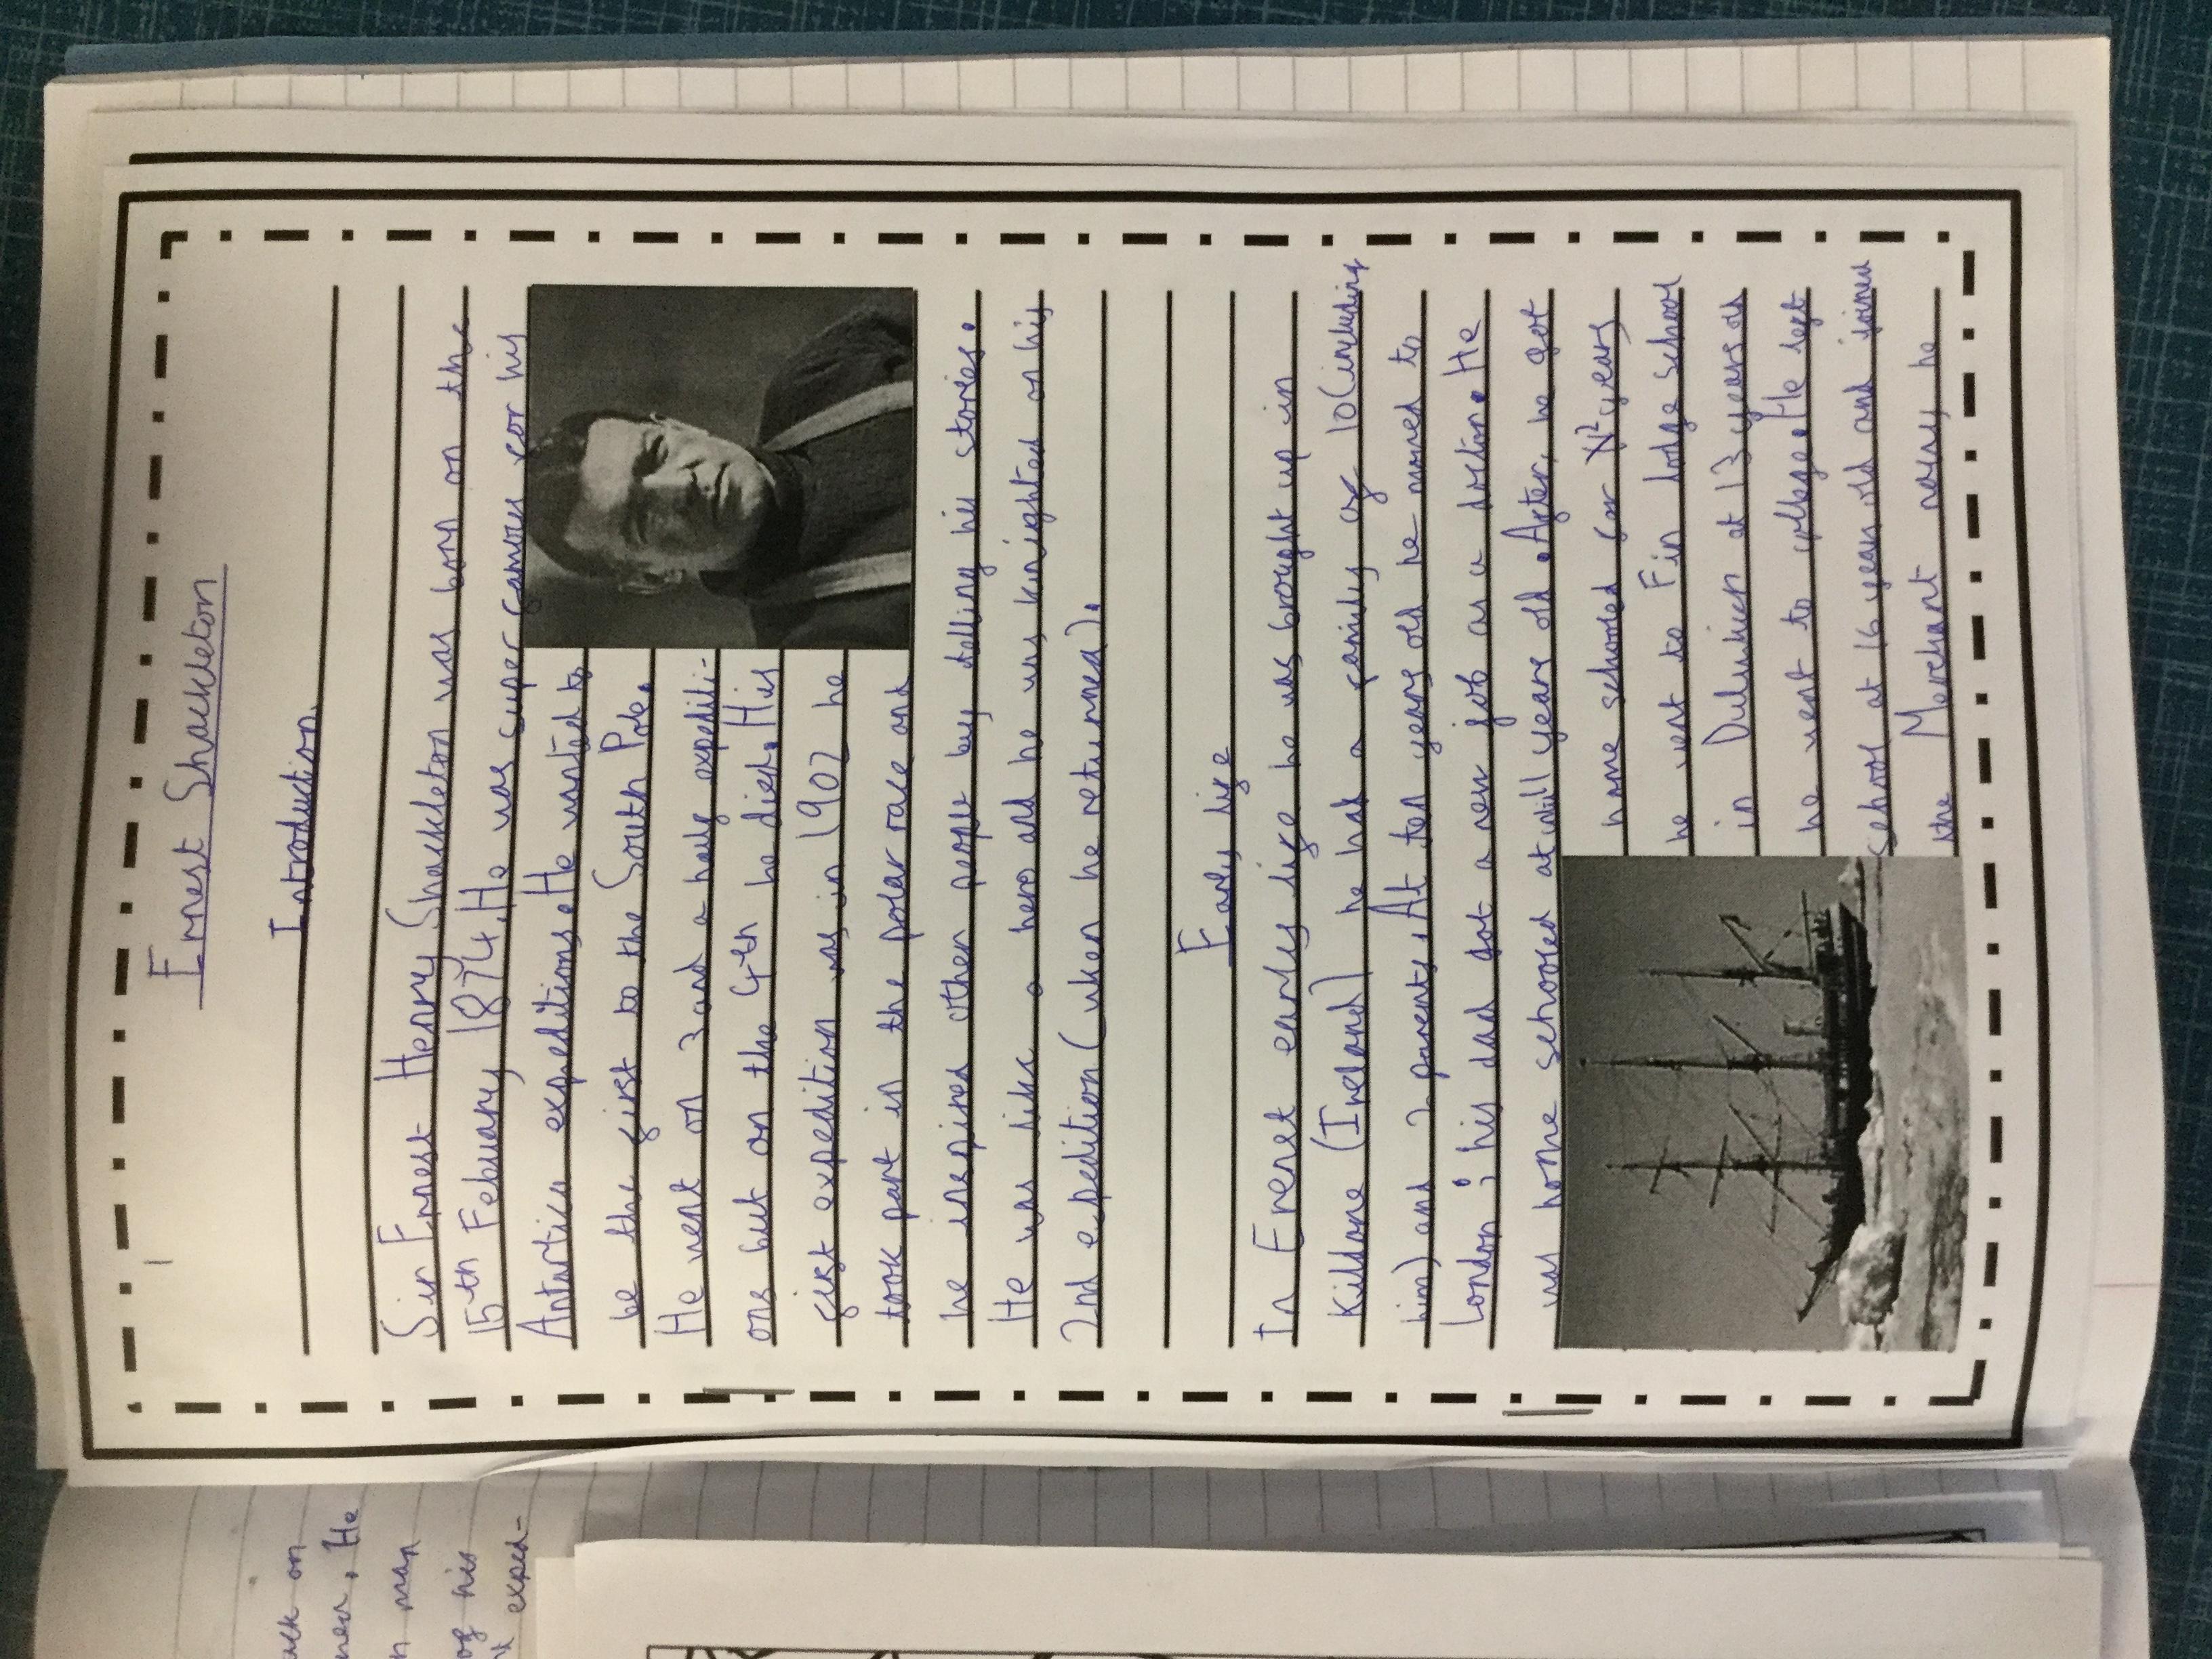 Ernest Shackleton
Introduction.
Sir Ernest Henry Shackleton was born on the
15th February 1874. He was super famous for his
Antartica expeditions. He wanted to
be the first to the South Pole.
He went on 3 and a half expediti-
ons but on the 4th he died. His
first expedition was in 1902 he
took part in the polar race and
he inspired other people by telling his stories.
He was like a hero and he was knighted on his
2nd expedition (when he returned).
Early life
In Erenst early life he was brought up in
Kildare (Ireland) he had a family of 10 (including
him) and 2 parents. At ten years old he moved to
London ; his dad got a new job as a doctor. He
was home schooled at until years old. After, he got
home schooled for 2 years
he went to Fir lodge school
in Dulwich at 13 years old
he went to college. He left
School at 16 years old and joined
the Merchant navy he
on
. He
man
of his
exped-